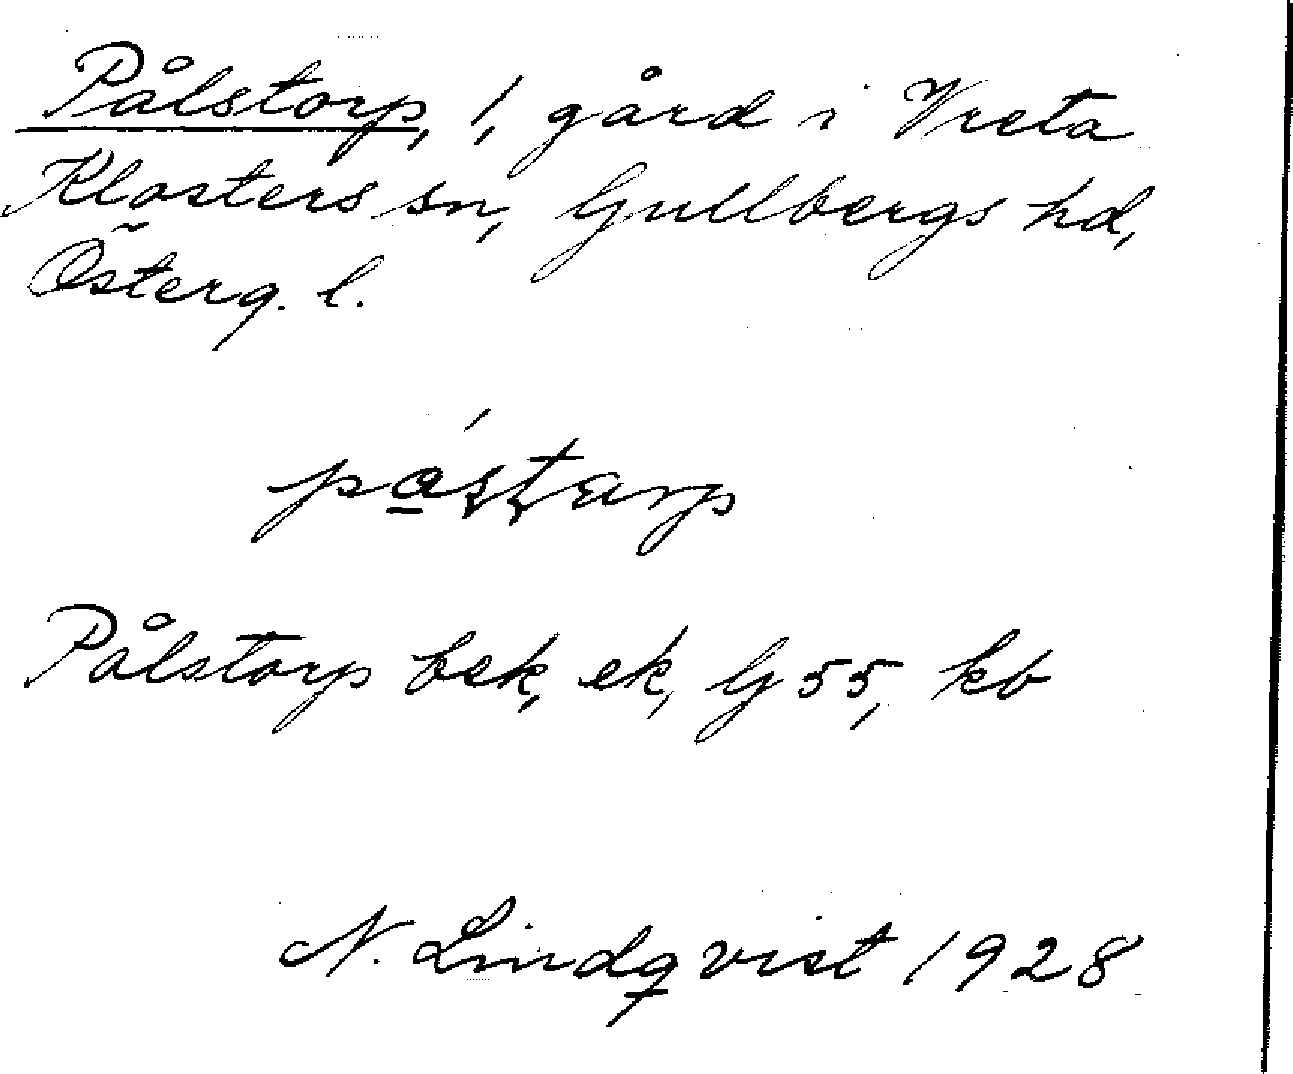 Pålstorp, 1, gård i Vreta
Klosters sn, Gullbergs hd,
Österg. l.
Pålstorp bek, ek, G 55, kb
N. Lindqvist 1928